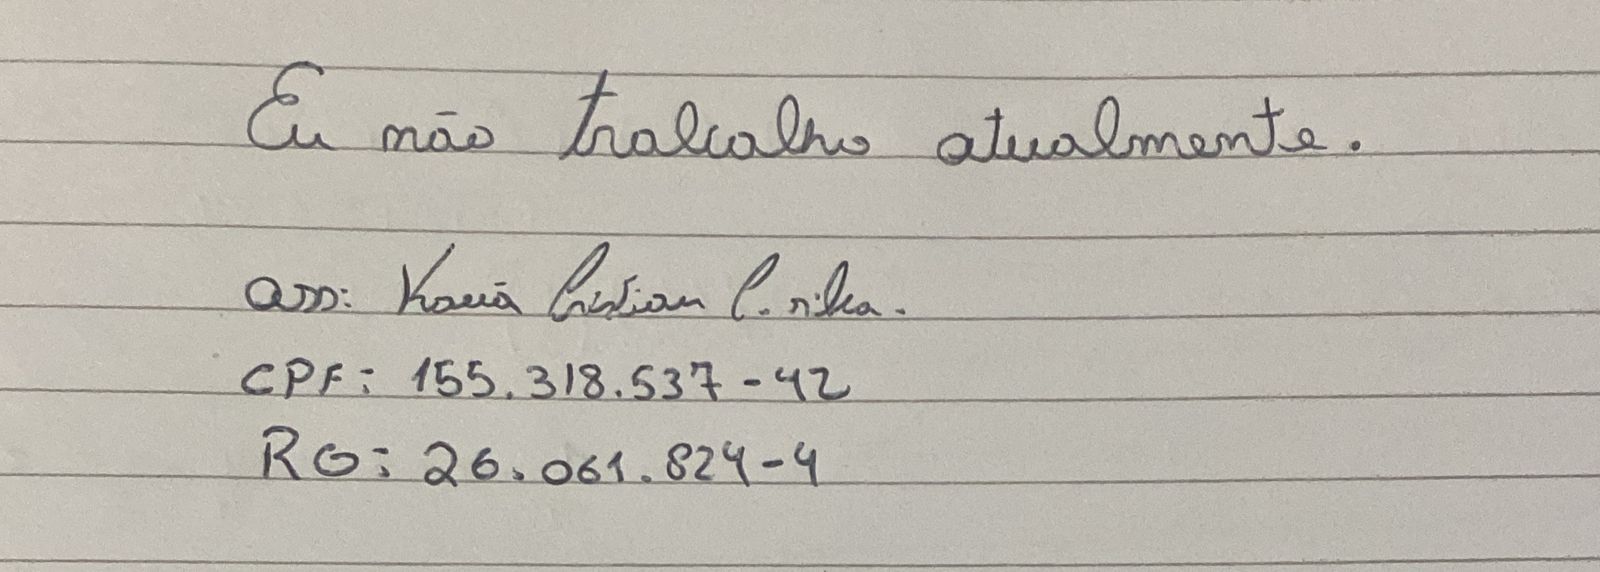 Eu não trabalho atualmente.
ass: Kauã Cristian C. silva.
CPF: 155.318.537-42
RG: 26.061.824-4